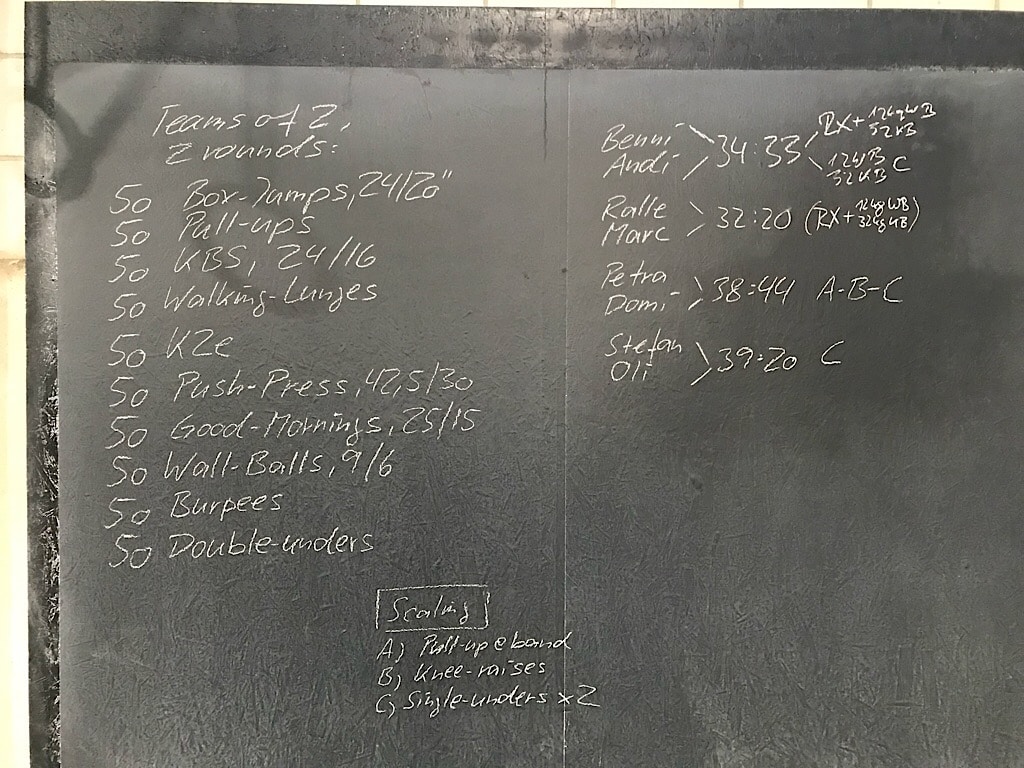 Teams of 2,
2 rounds:
50 Box-Jumps, 24/20"
50 Pull-ups
50 KBS, 24/16
50 Walking-Lunges
50 K2e
50 Push-Press, 42,5/30
50 Good-Mornings, 25/15
50 Wall-Balls, 9/6
50 Burpees
50 Double-unders
Scaling
A) Pull-up @ band
B) Knee-raises
C) Single-unders x2
Benni
Andi
34:33
RX+ 12kg WB
32KB
32KB C
Ralle
Marc
32:20 (RX+ 12kg WB
32kg KB)
Petra
Domi
38:44 A-B-C
Stefan
Oli
39:20 C